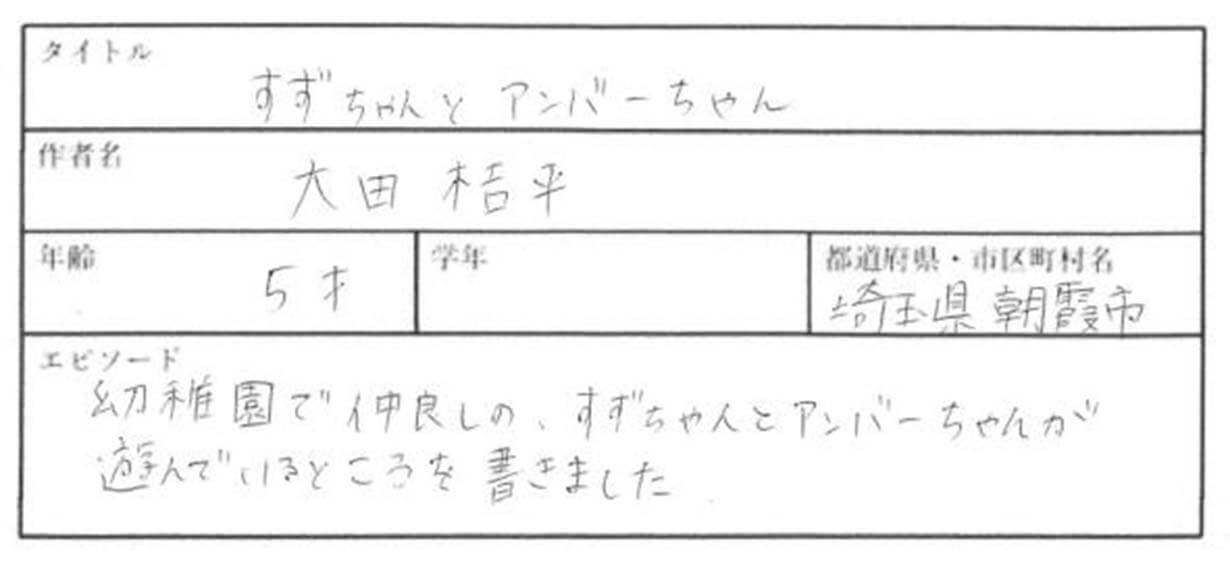 タイトル
すずちゃんと アンバーちゃん
作者名
大田 桔平
年齢
5才
学年
都道府県・市区町村名
埼玉県 朝霞市
エピソード
幼稚園で仲良しの、すずちゃんとアンバーちゃんが
遊んでいるところを書きました